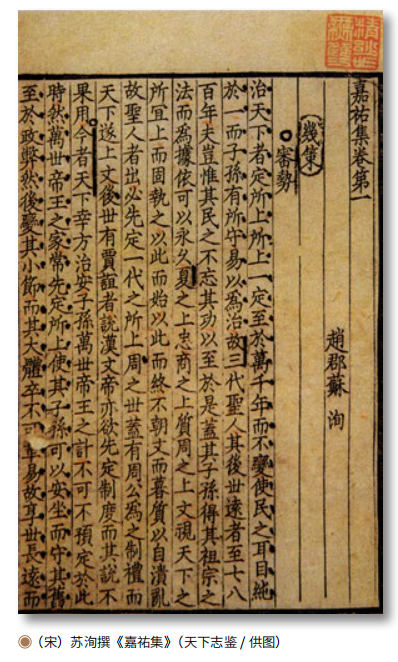 嘉祐集卷第一
趙郡蘇洵
幾策
審勢
治天下者定所上所上一定至於萬千年而不變使民之耳目純
於一而子孫有所守易以為治故三代聖人其後世遠者至七八
百年夫豈惟其民之不忘其功以至於是蓋其子孫得其祖宗之
法而為據依可以永久夏之上忠商之上質周之上文視天下之
所宜上而固執之以此而始以此而終不朝文而暮質以自潰亂
故聖人者出必先定一代之所上周之世蓋有周公為之制禮而
天下遂上文後世有賈誼者說漢文帝亦欲先定制度而其說不
果用今者天下幸方治安子孫萬世帝王之計不可不預定於此
時然萬世帝王之家常先定所上使其子孫可以安坐而守其舊
至於政弊然後變其小節而其大體卒不可革易故享世長遠而
（宋）苏洵撰《嘉祐集》（天下志鉴 / 供图）